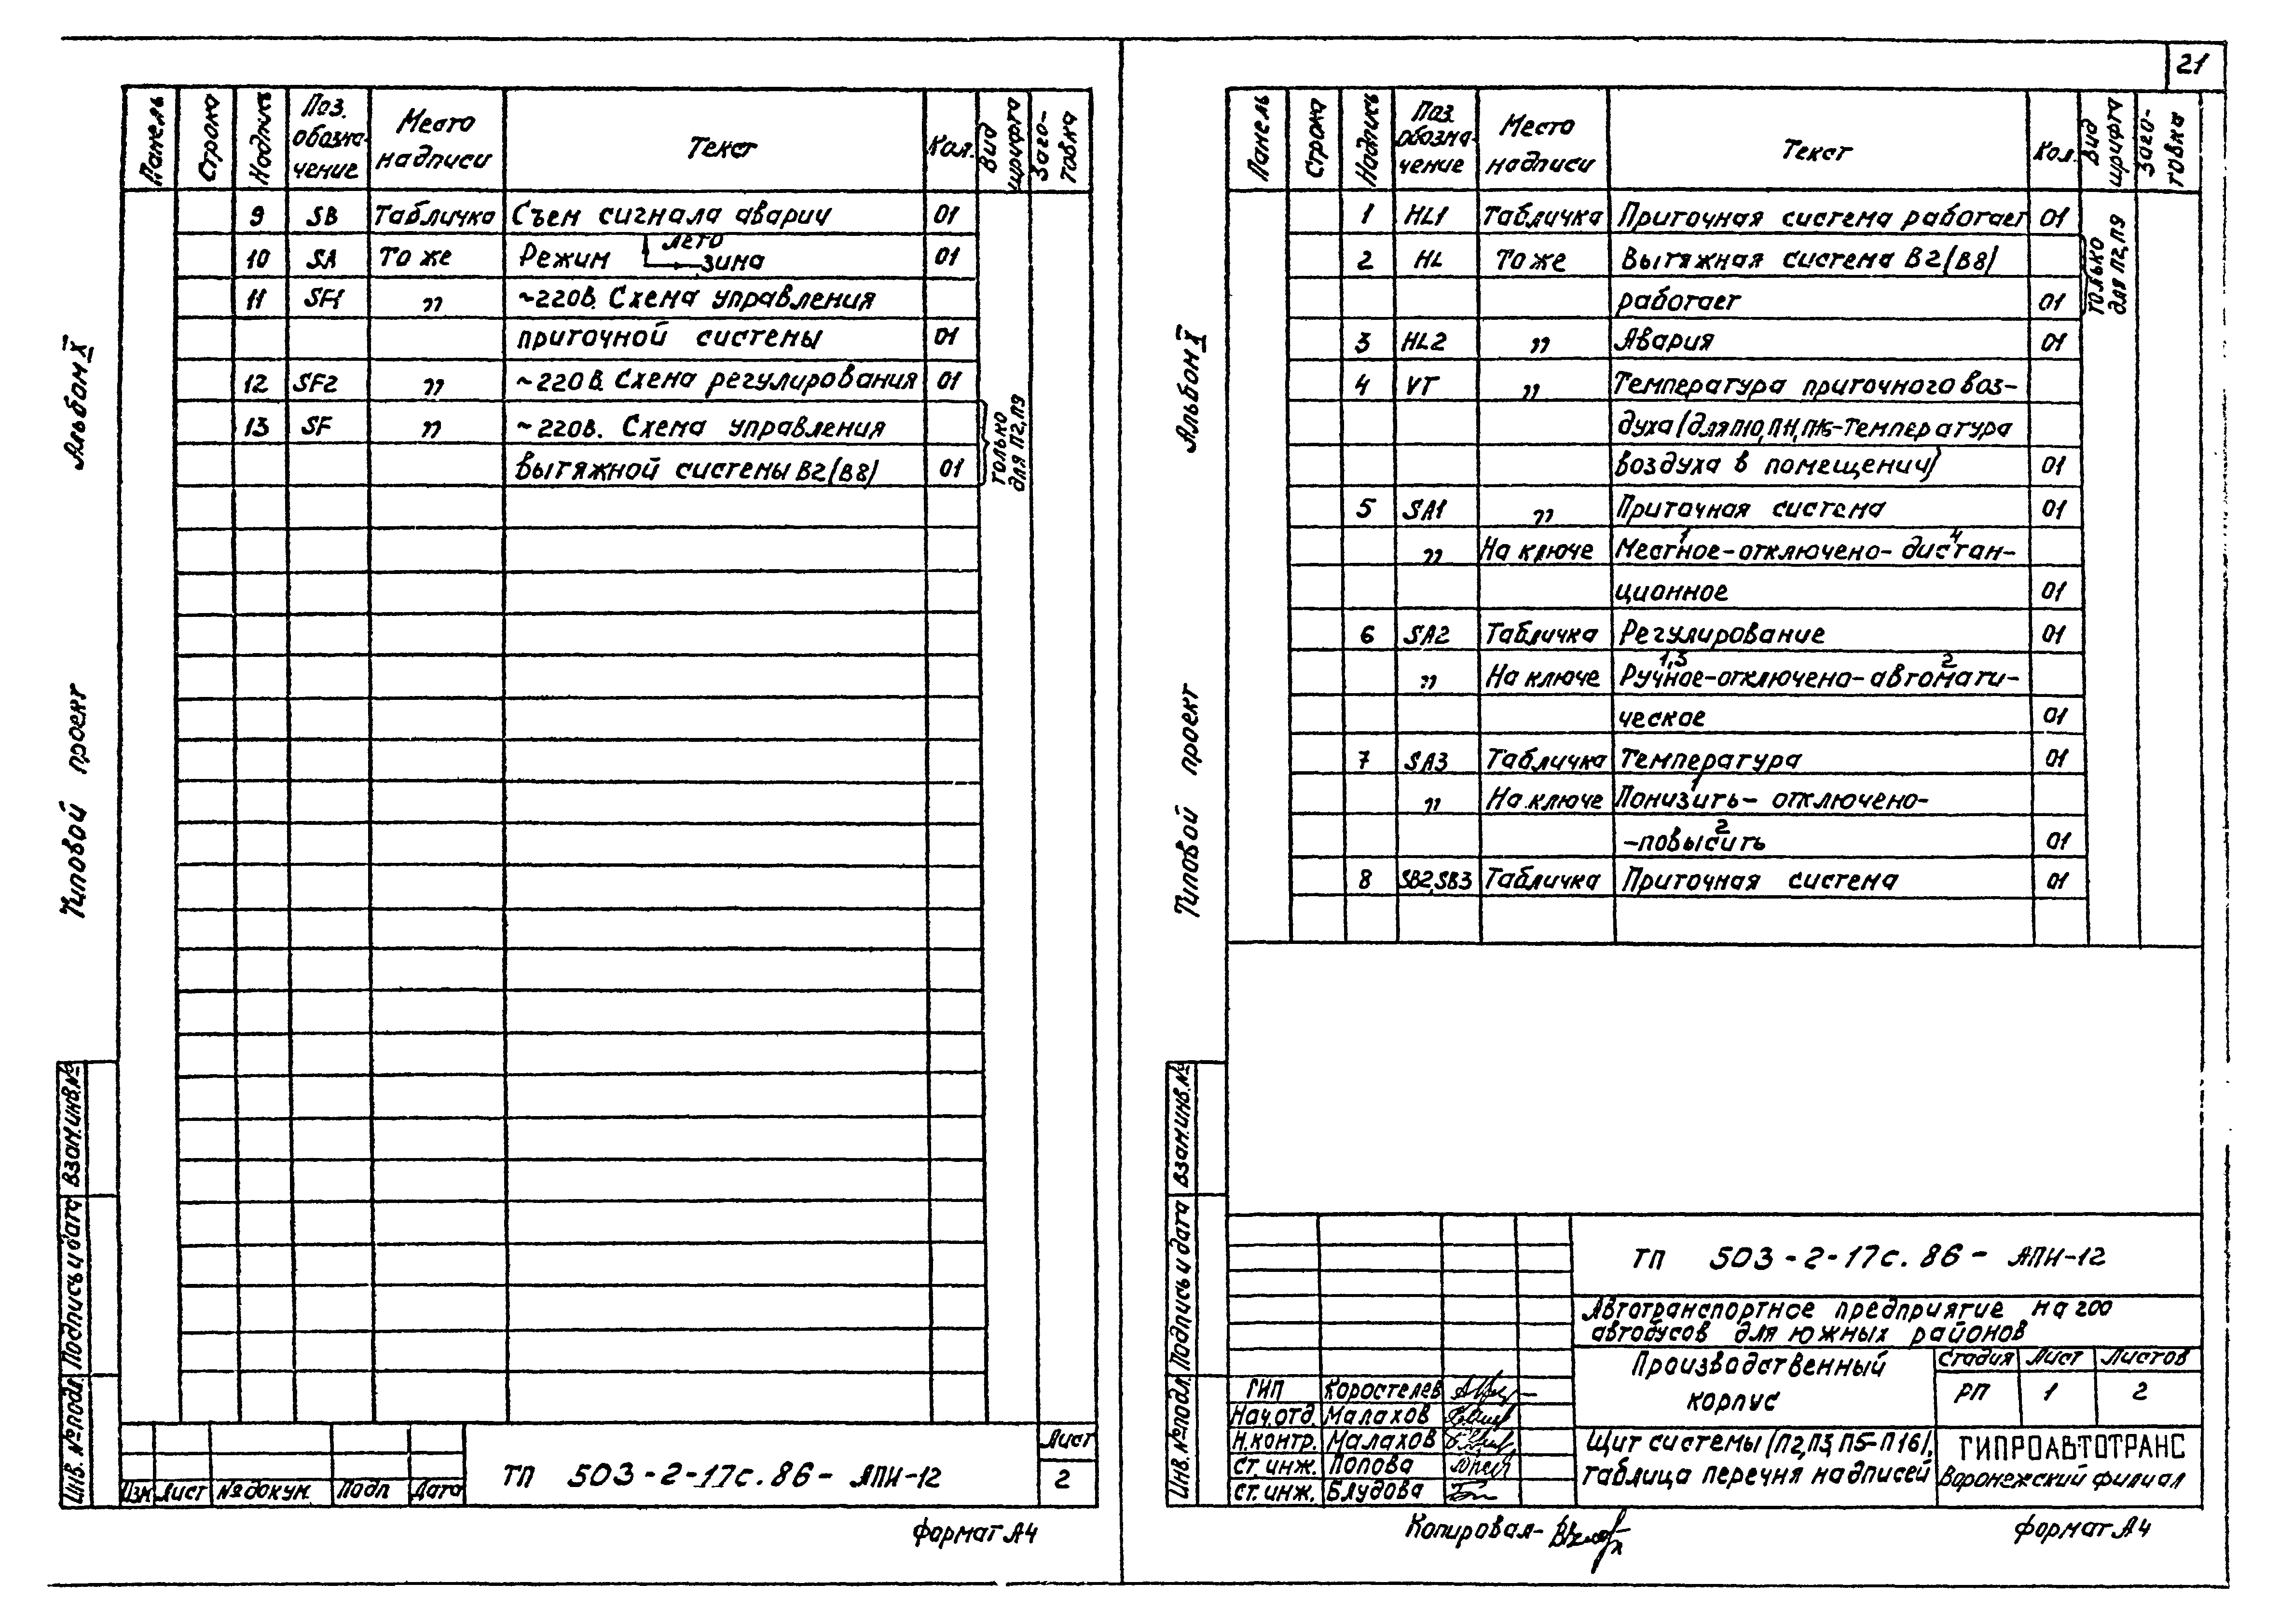 21
Панель Строка Надпись Поз. обозна- чение Место надписи Текст Кол. Вид шрифта Заго- товка
9 SB Табличка Съем сигнала аварии 01
лето
10 SA То же Режим зима 01
11 SF1 " ~220в. Схема управления
приточной системы 01
12 SF2 " ~220в. Схема регулирования 01
13 SF " ~220в. Схема управления
вытяжной системы В2(В8) 01
только
для П2,П9
Альбом X
Типовой проект
Взам.инв.№
Подпись и дата
Инв.№подл.
Изм Лист № докум. Подп Дата
ТП 503-2-17с.86- АПИ-12
Лист
2
Формат А4
Панель Строка Надпись Поз. обозна- чение Место надписи Текст Кол. Вид шрифта Заго- товка
1 HL1 Табличка Приточная система работает 01
2 HL То же Вытяжная система В2(В8)
работает 01
только
для П2,П9
3 HL2 " Авария 01
4 VT " Температура приточного воз-
духа (для П10,П11,П15-Температура
воздуха в помещении) 01
5 SA1 " Приточная система 01
1 4
" На ключе Местное-отключено-дистан-
ционное 01
6 SA2 Табличка Регулирование 01
1,3 2
" На ключе Ручное-отключено-автомати-
ческое 01
7 SA3 Табличка Температура 01
1
" На ключе Понизить- отключено-
2
-повысить 01
8 SB2,SB3 Табличка Приточная система 01
Альбом X
Типовой проект
Взам.инв.№
Подпись и дата
Инв.№подл.
ТП 503-2-17с.86- АПИ-12
Автотранспортное предприятие на 200
автобусов для южных районов
Производственный
корпус
Стадия Лист Листов
РП 1 2
ГИП Коростелев
Нач.отд. Малахов
Н.контр. Малахов
Ст.инж. Попова
Ст.инж. Блудова
Щит системы (П2,П3,П5-П16),
таблица перечня надписей
ГИПРОАВТОТРАНС
Воронежский филиал
Копировал-
Формат А4